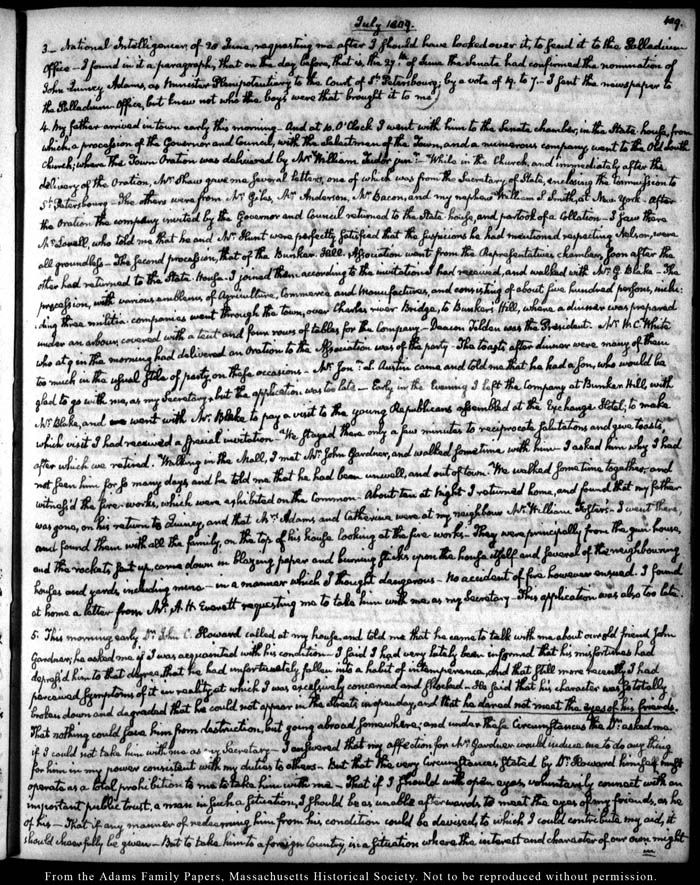 July 1809.
409.
3 — National Intelligencer, of 20 June, requesting me after I should have looked over it, to send it to the Palladium
Office — I found in it a paragraph, that on the day before, that is, the 27th of June the Senate had confirmed the nomination of
John Quincy Adams, as Minister Plenipotentiary to the Court of St. Petersbourg; by a vote of 19. to 7. — I sent the newspaper to
the Palladium Office, but knew not who the boys were that brought it to me)
4. My father arrived in town early this morning — And at 10. O'Clock I went with him to the Senate chamber, in the State-house, from
which, a procession of the Governor and Council, with the Selectmen of the Town, and a numerous company, went to the Old South
Church; where the Town Oration was delivered by Mr. William Tudor junr. — While in the Church, and immediately after the
delivery of the Oration, Mr. Shaw gave me several letters, one of which was from the Secretary of State, enclosing the Commission to
St. Petersbourg — The others were from Mr. Giles, Mr. Anderson, Mr. Bacon, and my nephew William S. Smith, at New York. After
the Oration the company invited by the Governor and Council returned to the State-house, and partook of a Collation — I saw there
Mr. who told me that he and Mr. Hunt were perfectly satisfied that the suspicions he had mentioned respecting Nelson, were
all groundless — The second procession, that of the Bunker-Hill Association went from the Representatives chamber, soon after the
other had returned to the State-House — I joined them according to the invitation I had received, and walked with Mr. G. Blake — The
procession, with various emblems of Agriculture, Commerce and Manufactures, and consisting of about five hundred persons, inclu-
ding three militia companies went through the town, over Charles river Bridge, to Bunkers Hill, where a dinner was prepared
under an arbour, covered with a tent and four rows of tables for the Company — Deacon Tilden was the President. Mr. W. C. White
who at 9 in the morning had delivered an Oration to the Association was of the party — The toasts after dinner were many of them
too much in the usual stile of party on these occasions — Mr. Jonn. L. Austin came and told me that he had a son, who would be
glad to go with me, as my Secretary, but the application was too late — Early in the Evening I left the Company at Bunker Hill, with
Mr. Blake, and went with Mr. Blake to pay a visit to the young Republicans assembled at the Exchange Hotel; to make
which visit I had received a special invitation — We stayed there only a few minutes to reciprocate salutations and give toasts,
after which we retired. Walking in the Mall, I met Mr. John Gardner, and walked sometime with him — I asked him why I had
not seen him for so many days, and he told me that he had been unwell, and out of town. We walked sometime together, and
witness'd the fire-works, which were exhibited on the Common — About ten at Night I returned home, and found that my father
was gone, on his return to Quincy, and that Mrs. Adams and Catherine were at my neighbour Mr. William Foster's — I went there,
and found them with all the family, on the top of his house looking at the fire works — They were principally from the gun-house,
and the rockets sent up, came down in blazing paper and burning sticks upon the house itself and several of the neighbouring
houses and yards, including mine — in a manner which I thought dangerous — No accident of fire however ensued. I found
at home a letter from Mr. A. H. Everett requesting me to take him with me as my Secretary — This application was also too late.
5. This morning early, Dr. John C. Howard called at my house, and told me that he came to talk with me about our old friend John
Gardner; he asked me if I was acquainted with his condition — I said I had very lately been informed that his misfortunes had
depress'd him to that degree, that he had unfortunately fallen into a habit of intemperance, and that still more recently, I had
perceived symptoms of it in reality, at which I was excessively concerned and shocked — He said that his character was so totally
broken down and degraded that he could not appear in the Streets in open day, and that he dared not meet the eyes of his friends.
That nothing could save him from destruction, but going abroad somewhere; and under these Circumstances the Dr. asked me,
if I could not take him with me as my Secretary — I answered that my affection for Mr. Gardner would induce me to do any thing
for him in my power consistent with my duties to others — But that the very Circumstances stated by Dr. Howard himself must
operate as a total prohibition to me to take him with me — That if I should with open eyes, voluntarily connect with an
important public trust, a man in such a situation, I should be as unable afterwards to meet the eyes of my friends, as he
of his — That if any manner of redeeming him from his condition could be devised, to which I could contribute my aid, it
should cheerfully be given — But to take him to a foreign Country, in a situation where the interest and character of our own might
From the Adams Family Papers, Massachusetts Historical Society. Not to be reproduced without permission.